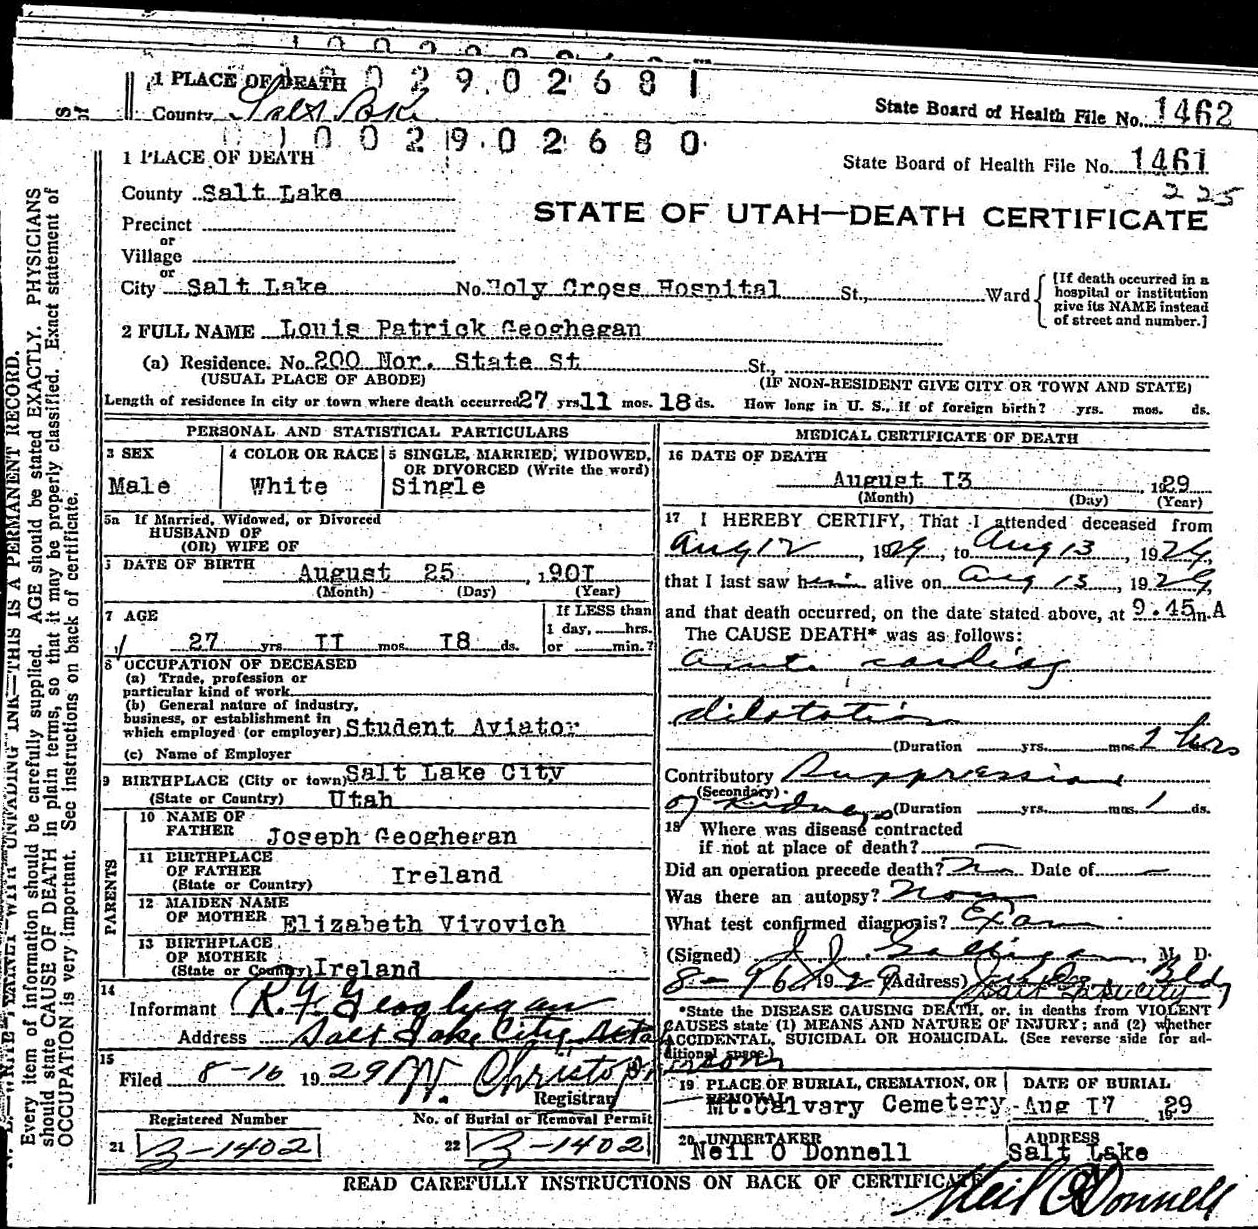 1 PLACE OF DEATH
1002902681
County Salt Lake
State Board of Health File No. 1462
1002902680
1 PLACE OF DEATH
State Board of Health File No. 1461
225
County Salt Lake
STATE OF UTAH—DEATH CERTIFICATE
Precinct
or
Village
or
City Salt Lake No. Holy Cross Hospital St., Ward [If death occurred in a hospital or institution give its NAME instead of street and number.]
2 FULL NAME Louis Patrick Geoghegan
(a) Residence. No. 200 Nor. State St St.,
(USUAL PLACE OF ABODE) (IF NON-RESIDENT GIVE CITY OR TOWN AND STATE)
Length of residence in city or town where death occurred 27 yrs 11 mos. 18 ds. How long in U. S., if of foreign birth? yrs. mos. ds.
PERSONAL AND STATISTICAL PARTICULARS
3 SEX
Male
4 COLOR OR RACE
White
5 SINGLE, MARRIED, WIDOWED, OR DIVORCED (Write the word)
Single
5a If Married, Widowed, or Divorced
HUSBAND OF
(OR) WIFE OF
DATE OF BIRTH August 25, 1901
(Month) (Day) (Year)
7 AGE
27 yrs II mos I8 ds.
If LESS than
1 day, hrs.
or min.?
8 OCCUPATION OF DECEASED
(a) Trade, profession or
particular kind of work
(b) General nature of industry,
business, or establishment in
which employed (or employer) Student Aviator
(c) Name of Employer
9 BIRTHPLACE (City or town) Salt Lake City
(State or Country) Utah
PARENTS
10 NAME OF
FATHER Joseph Geoghegan
11 BIRTHPLACE
OF FATHER Ireland
(State or Country)
12 MAIDEN NAME
OF MOTHER Elizabeth Vivovich
13 BIRTHPLACE
OF MOTHER
(State or Country) Ireland
14
Informant R. F. Geoghegan
Address Salt Lake City Utah
15
Filed 8-16 1929 W. Christopherson
Registrar
Registered Number No. of Burial or Removal Permit
21 B-1402 22 B-1402
MEDICAL CERTIFICATE OF DEATH
16 DATE OF DEATH
August I3, 1929
(Month) (Day) (Year)
17 I HEREBY CERTIFY, That I attended deceased from
Aug 12, 1929, to Aug 13, 1929,
that I last saw him alive on Aug 13, 1929,
and that death occurred, on the date stated above, at 9.45 m. A
The CAUSE DEATH* was as follows:
acute cardiac
dilatation
(Duration yrs. mos. 2 hrs
Contributory Suppression
(Secondary)
of Kidneys (Duration yrs. mos. 1 ds.
18 Where was disease contracted
if not at place of death?
Did an operation precede death? No Date of
Was there an autopsy? None
What test confirmed diagnosis? Exam
(Signed) J. J. Galligan, M. D.
1929 (Address) Bldg
Salt Lake City
*State the DISEASE CAUSING DEATH, or, in deaths from VIOLENT
CAUSES state (1) MEANS AND NATURE OF INJURY; and (2) whether
ACCIDENTAL, SUICIDAL OR HOMICIDAL. (See reverse side for ad-
ditional space.)
19 PLACE OF BURIAL, CREMATION, OR REMOVAL DATE OF BURIAL
Mt. Calvary Cemetery Aug I7 1929
20 UNDERTAKER ADDRESS
Neil O Donnell Salt Lake
READ CAREFULLY INSTRUCTIONS ON BACK OF CERTIFICATE
Neil O'Donnell
Every item of information should be carefully supplied. AGE should be stated EXACTLY. PHYSICIANS
should state CAUSE OF DEATH in plain terms, so that it may be properly classified. Exact statement of
OCCUPATION is very important. See instructions on back of certificate.
WRITE PLAINLY WITH UNFADING INK—THIS IS A PERMANENT RECORD.